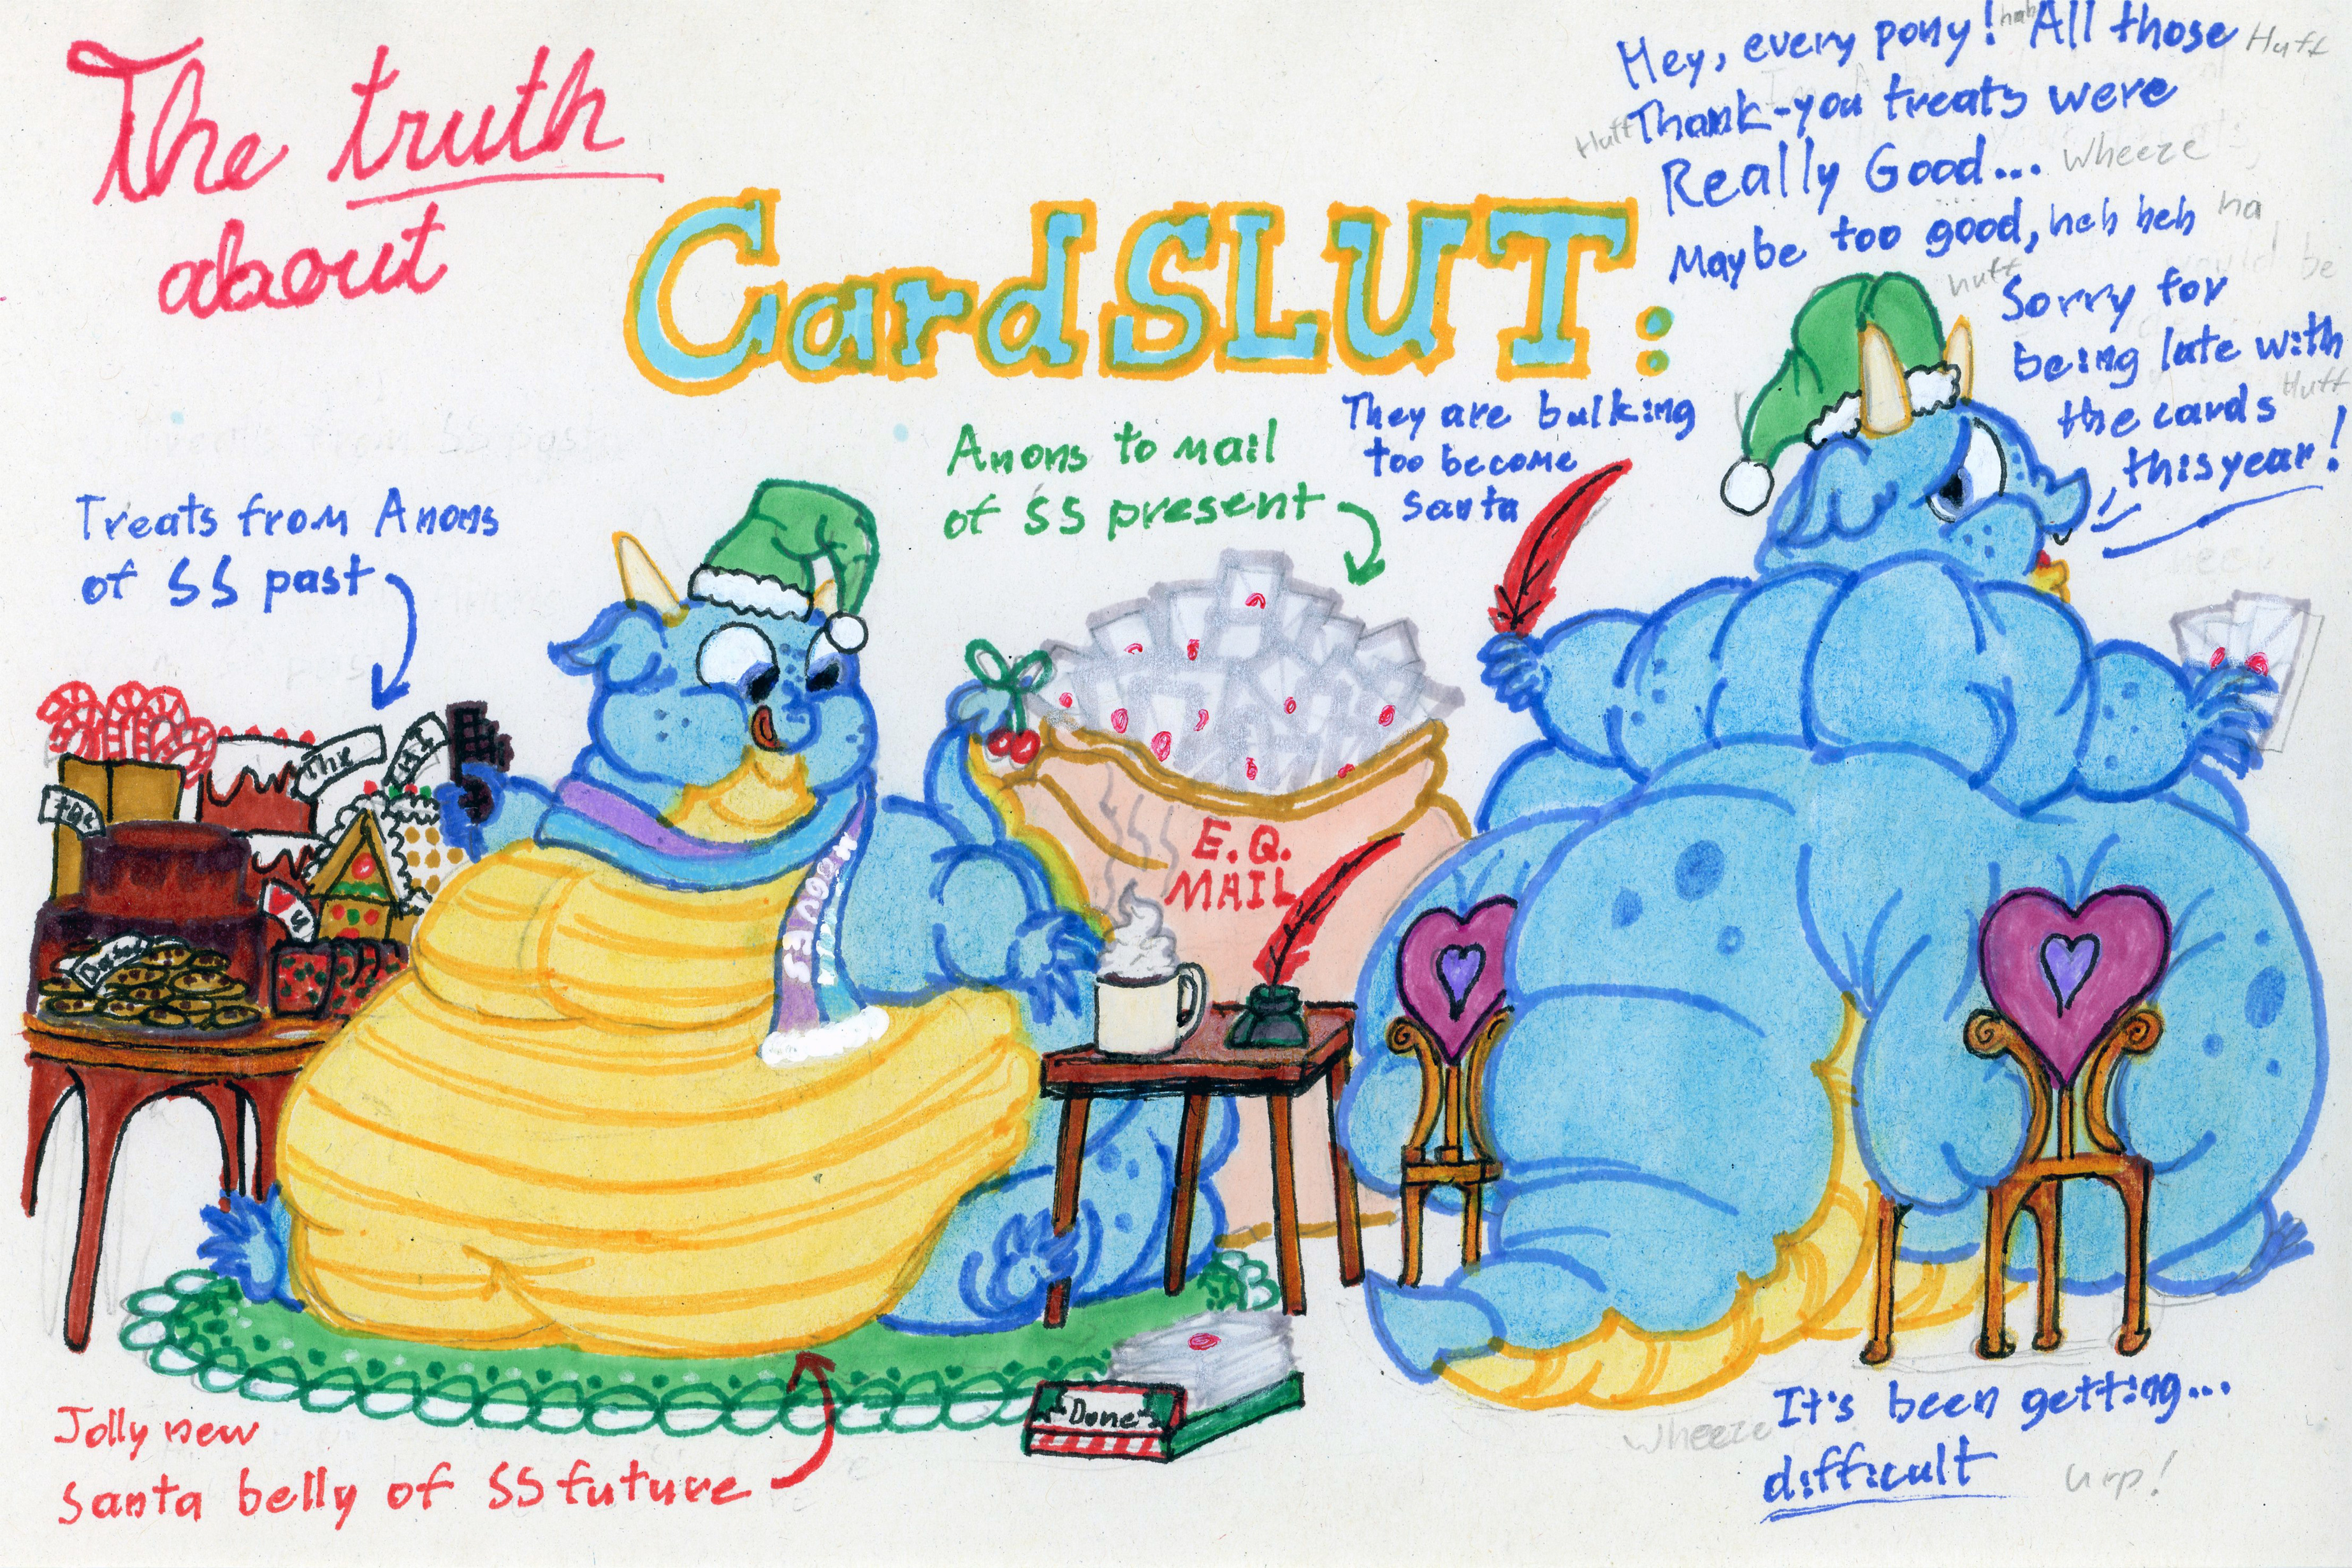 The truth
about
CardSLUT:
Hey, every pony! hah All those Huff
Huff Thank-you treats were
Really Good... Wheeze
Maybe too good, heh heh ha
huff Sorry for
being late with
the cards Huff
this year!
They are bulking
too become
Santa
Anons to mail
of SS present
Treats from Anons
of SS past
the
HI
the
♥ U
E.Q.
MAIL
Done
Jolly new
Santa belly of SS future
Wheeze It's been getting...
difficult Urp!